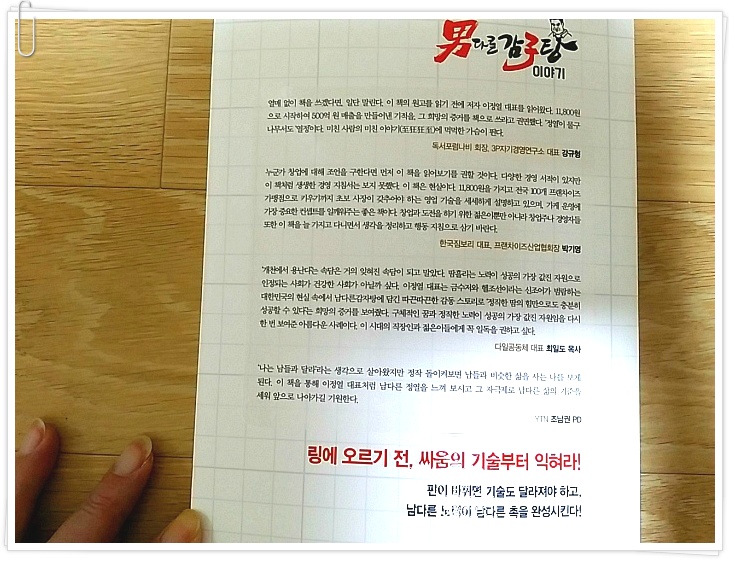 男다른 감子탕
이야기
열매 없이 책을 쓰겠다면, 일단 말린다. 이 책의 원고를 읽기 전에 저자 이정열 대표를 읽어왔다. 11,800원
으로 시작하여 500억 원 매출을 만들어낸 기적을, 그 희망의 증거를 책으로 쓰라고 권면했다. '정열'이 물구
나무서도 '열정'이다. 미친 사람의 미친 이야기 에 벅벅한 가슴이 뛴다.
독서포럼나비 회장, 3P자기경영연구소 대표 강규형
누군가 창업에 대해 조언을 구한다면 먼저 이 책을 읽어보기를 권할 것이다. 다양한 경영 서적이 있지만
이 책처럼 생생한 경영 지침서는 보지 못했다. 이 책은 현실이다. 11,800원을 가지고 전국 100개 프랜차이즈
가맹점으로 키우기까지 초보 사장이 갖추어야 하는 영업 기술을 세세하게 설명하고 있으며, 가게 운영에
가장 중요한 컨셉트를 일깨워주는 좋은 책이다. 창업과 도전을 하기 위한 젊은이뿐만 아니라 창업주나 경영자들
또한 이 책을 늘 가지고 다니면서 생각을 정리하고 행동 지침으로 삼기 바란다.
한국짐보리 대표, 프랜차이즈산업협회장 박기영
'개천에서 용난다'는 속담은 거의 잊혀진 속담이 되고 말았다. 땀흘리는 노력이 성공의 가장 값진 자원으로
인정되는 사회가 건강한 사회가 아닐까 싶다. 이정열 대표는 금수저와 헬조선이라는 신조어가 범람하는
대한민국의 현실 속에서 남다른감자탕에 담긴 따끈따끈한 감동 스토리로 '정직한 땀의 힘만으로도 충분히
성공할 수 있다'는 희망의 증거를 보여줬다. 구체적인 꿈과 정직한 노력이 성공의 가장 값진 자원임을 다시
한 번 보여준 아름다운 사례이다. 이 시대의 직장인과 젊은이들에게 꼭 일독을 권하고 싶다.
다일공동체 대표 최일도 목사
'나는 남들과 달라'라는 생각으로 살아왔지만 정작 돌이켜보면 남들과 비슷한 삶을 사는 나를 보게
된다. 이 책을 통해 이정열 대표처럼 남다른 정열을 느껴 보시고 그 자극제로 남다른 삶의 기준을
세워 앞으로 나아가길 기원한다.
YTN 조남권 PD
링에 오르기 전, 싸움의 기술부터 익혀라!
판이 바뀌면 기술도 달라져야 하고,
남다른 노력이 남다른 촉을 완성시킨다!